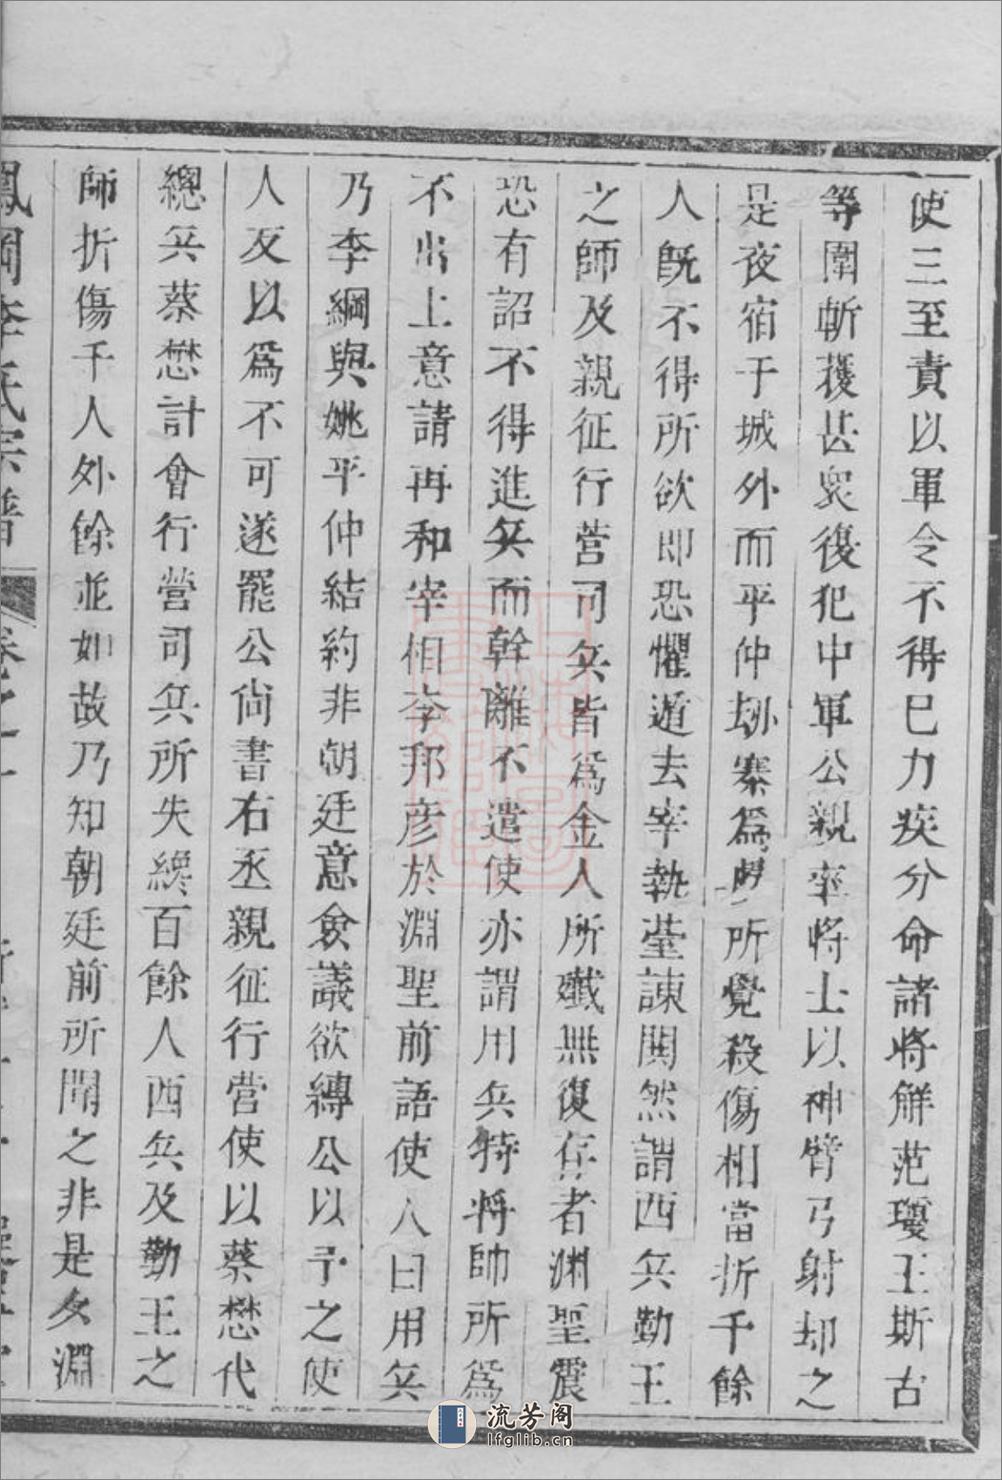 使三至責以軍令不得已力疾分命諸將解范瓊王斯古
等圍斬獲甚衆復犯中軍公親率將士以神臂弓射却之
是夜宿于城外而平仲刼寨爲所覺殺傷相當折千餘
人旣不得所欲即恐懼遁去宰執臺諫鬨然謂西兵勤王
之師及親征行營司兵皆爲金人所殲無復存者淵聖震
恐有詔不得進兵而幹離不遣使亦謂用兵特將帥所爲
不出上意請再和宰相李邦彦於淵聖前語使人曰用兵
乃李綱與姚平仲結約非朝廷意僉議欲縛公以予之使
人反以爲不可遂罷公尙書右丞親征行營使以蔡懋代
總兵蔡懋計會行營司兵所失纔百餘人西兵及勤王之
師折傷千人外餘並如故乃知朝廷前所聞之非是夂淵
鳳岡李氏宗譜 卷之一
流芳阁
lfglib.cn